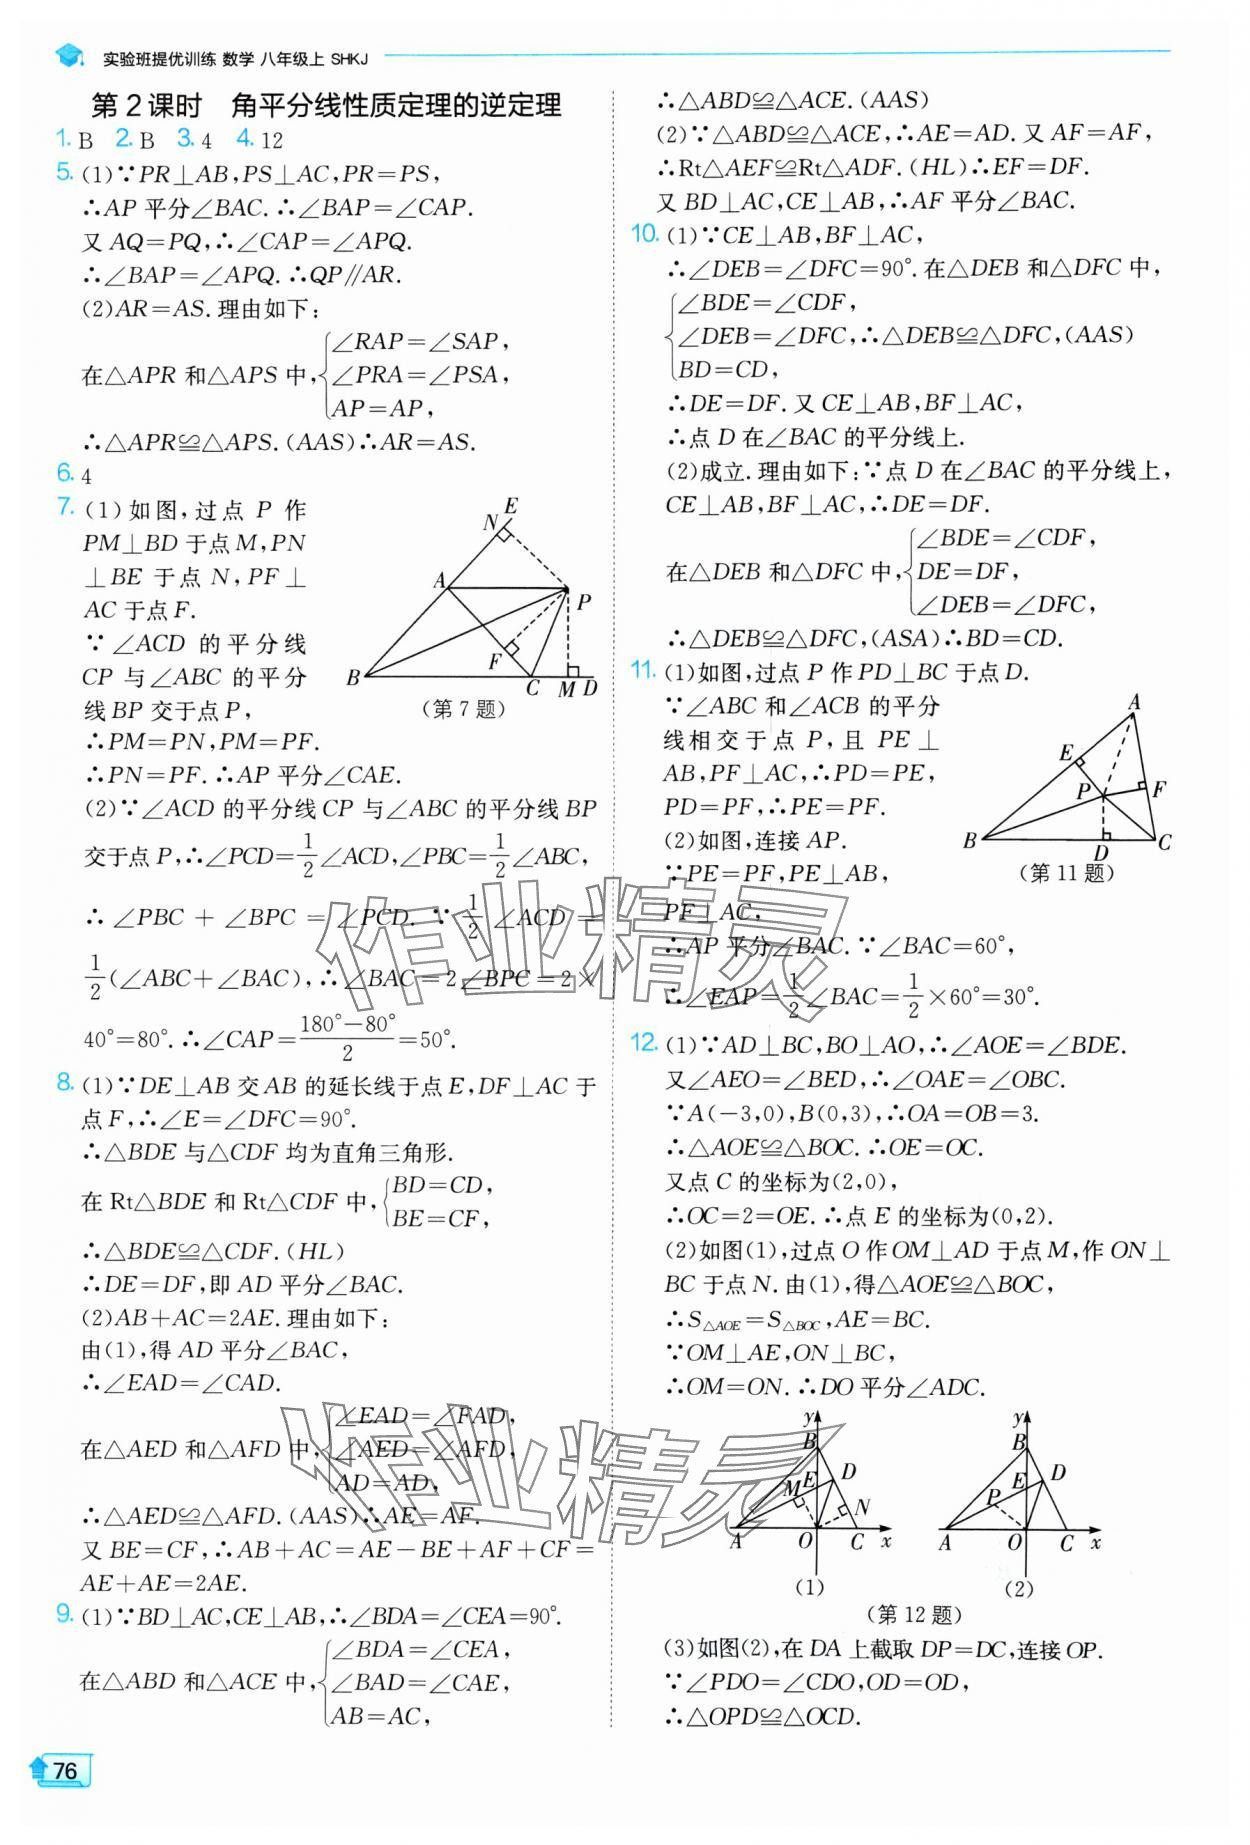 实验班提优训练 数学 八年级上 SHKJ
第2课时 角平分线性质定理的逆定理
1. B 2. B 3. 4 4. 12
5. (1)∵PR⊥AB,PS⊥AC,PR=PS,
∴AP 平分∠BAC.∴∠BAP=∠CAP.
又 AQ=PQ,∴∠CAP=∠APQ.
∴∠BAP=∠APQ.∴QP∥AR.
(2)AR=AS.理由如下:
在△APR 和△APS 中,{∠RAP=∠SAP,
∠PRA=∠PSA,
AP=AP,
∴△APR≌△APS.(AAS)∴AR=AS.
6. 4
7. (1)如图,过点 P 作
PM⊥BD 于点 M,PN
⊥BE 于点 N,PF⊥
AC 于点 F.
∵∠ACD 的平分线
CP 与∠ABC 的平分
线 BP 交于点 P,
∴PM=PN,PM=PF.
∴PN=PF.∴AP 平分∠CAE.
E
N
A
P
F
B
C M D
(第 7 题)
(2)∵∠ACD 的平分线 CP 与∠ABC 的平分线 BP
交于点 P,∴∠PCD=1/2∠ACD,∠PBC=1/2∠ABC,
∴∠PBC+∠BPC=∠PCD.∵1/2∠ACD=
1/2(∠ABC+∠BAC),∴∠BAC=2∠BPC=2×
40°=80°.∴∠CAP=(180°-80°)/2=50°.
8. (1)∵DE⊥AB 交 AB 的延长线于点 E,DF⊥AC 于
点 F,∴∠E=∠DFC=90°.
∴△BDE 与△CDF 均为直角三角形.
在 Rt△BDE 和 Rt△CDF 中,{BD=CD,
BE=CF,
∴△BDE≌△CDF.(HL)
∴DE=DF,即 AD 平分∠BAC.
(2)AB+AC=2AE.理由如下:
由(1),得 AD 平分∠BAC,
∴∠EAD=∠CAD.
在△AED 和△AFD 中,{∠EAD=∠FAD,
∠AED=∠AFD,
AD=AD,
∴△AED≌△AFD.(AAS)∴AE=AF.
又 BE=CF,∴AB+AC=AE-BE+AF+CF=
AE+AE=2AE.
9. (1)∵BD⊥AC,CE⊥AB,∴∠BDA=∠CEA=90°.
在△ABD 和△ACE 中,{∠BDA=∠CEA,
∠BAD=∠CAE,
AB=AC,
∴△ABD≌△ACE.(AAS)
(2)∵△ABD≌△ACE,∴AE=AD.又 AF=AF,
∴Rt△AEF≌Rt△ADF.(HL)∴EF=DF.
又 BD⊥AC,CE⊥AB,∴AF 平分∠BAC.
10. (1)∵CE⊥AB,BF⊥AC,
∴∠DEB=∠DFC=90°.在△DEB 和△DFC 中,
{∠BDE=∠CDF,
∠DEB=∠DFC,∴△DEB≌△DFC,(AAS)
BD=CD,
∴DE=DF.又 CE⊥AB,BF⊥AC,
∴点 D 在∠BAC 的平分线上.
(2)成立.理由如下:∵点 D 在∠BAC 的平分线上,
CE⊥AB,BF⊥AC,∴DE=DF.
在△DEB 和△DFC 中,{∠BDE=∠CDF,
DE=DF,
∠DEB=∠DFC,
∴△DEB≌△DFC,(ASA)∴BD=CD.
11. (1)如图,过点 P 作 PD⊥BC 于点 D.
∵∠ABC 和∠ACB 的平分
线相交于点 P,且 PE⊥
AB,PF⊥AC,∴PD=PE,
PD=PF,∴PE=PF.
(2)如图,连接 AP.
∵PE=PF,PE⊥AB,
PF⊥AC,
∴AP 平分∠BAC.∵∠BAC=60°,
∴∠EAP=1/2∠BAC=1/2×60°=30°.
A
E
P F
B
D C
(第 11 题)
12. (1)∵AD⊥BC,BO⊥AO,∴∠AOE=∠BDE.
又∠AEO=∠BED,∴∠OAE=∠OBC.
∵A(-3,0),B(0,3),∴OA=OB=3.
∴△AOE≌△BOC.∴OE=OC.
又点 C 的坐标为(2,0),
∴OC=2=OE.∴点 E 的坐标为(0,2).
(2)如图(1),过点 O 作 OM⊥AD 于点 M,作 ON⊥
BC 于点 N.由(1),得△AOE≌△BOC,
∴S△AOE=S△BOC,AE=BC.
∵OM⊥AE,ON⊥BC,
∴OM=ON.∴DO 平分∠ADC.
y
B
M E D
N
A O C x
(1)
y
B
E D
P
A O C x
(2)
(第 12 题)
(3)如图(2),在 DA 上截取 DP=DC,连接 OP.
∵∠PDO=∠CDO,OD=OD,
∴△OPD≌△OCD.
作业精灵
作业精灵
76